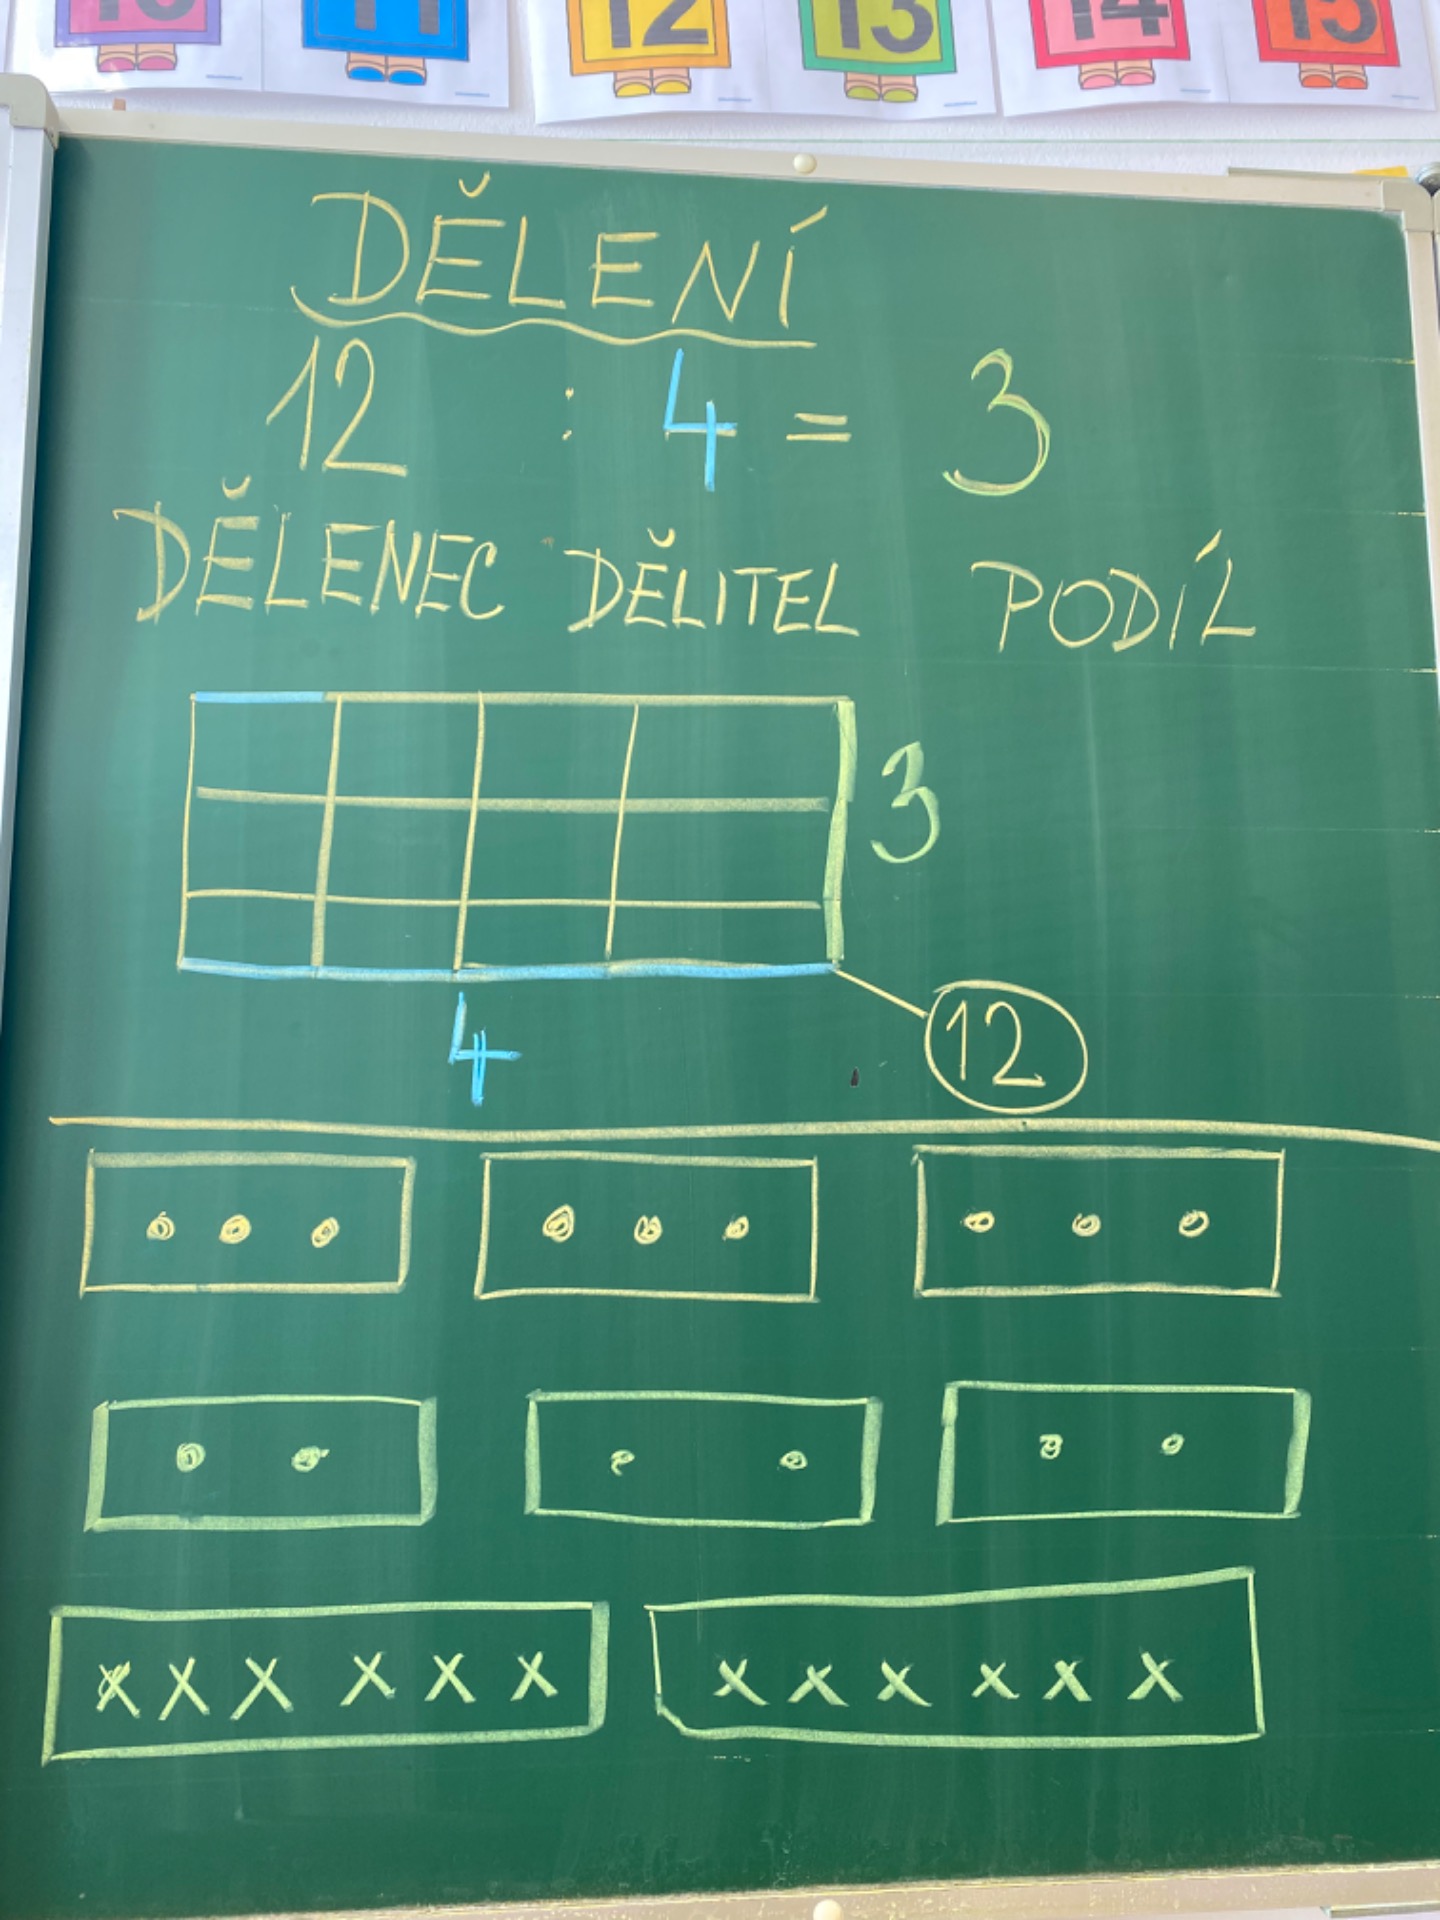 10 11 12 13 14 15
DĚLENÍ
12 : 4 = 3
DĚLENEC DĚLITEL PODÍL
3
4
12
x x x x x x x x x x x x